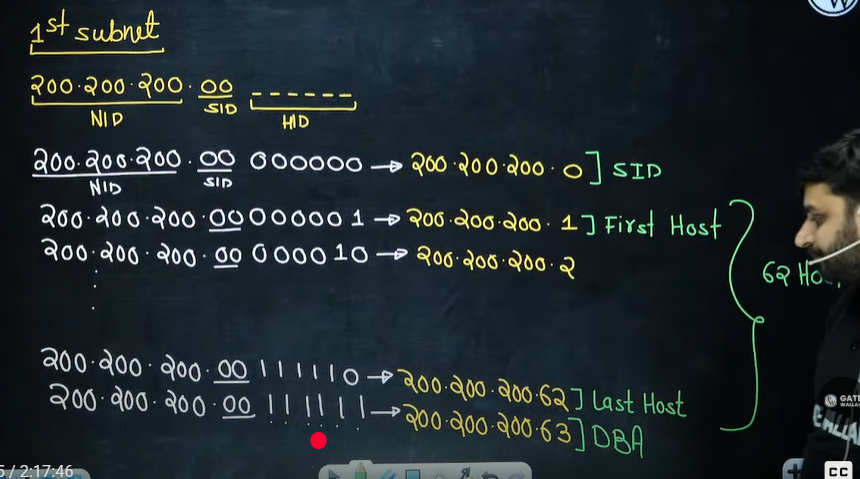 1st subnet
200.200.200.00 ------
NID SID HID
200.200.200.00 000000 → 200.200.200.0] SID
NID SID
200.200.200.00000001 → 200.200.200.1] First Host
200.200.200.00 000010 → 200.200.200.2
62
200.200.200.00 111110 → 200.200.200.62] Last Host
200.200.200.00 111111 → 200.200.200.63] DBA
GATE
WALLAH
/ 2:17:46
CC